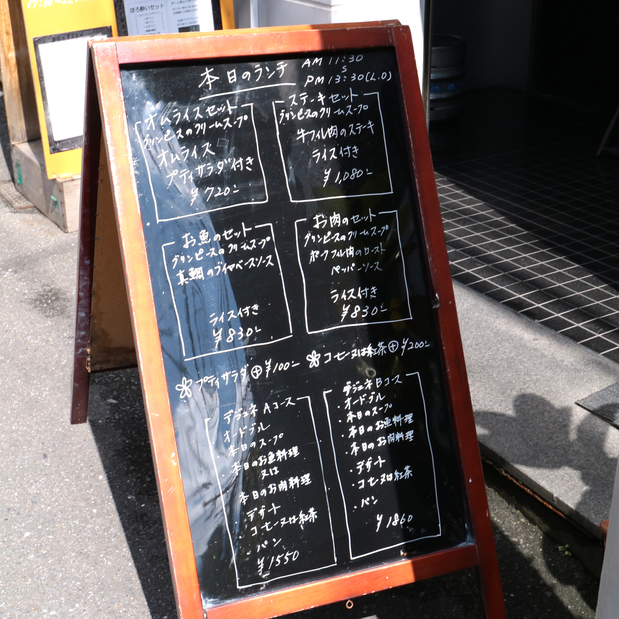 ほろ酔いセット
本日のランチ
AM 11:30
S
PM 13:30(L.O)
オムライスセット
グリンピースのクリームスープ
オムライス
プティサラダ付き
¥720-
ステーキセット
グリンピースのクリームスープ
牛フィル肉のステーキ
ライス付き
¥1,080-
お魚のセット
グリンピースのクリームスープ
真鯛のブイヤベースソース
ライス付き
¥830-
お肉のセット
グリンピースのクリームスープ
ポークフィル肉のロースト
ペッパーソース
ライス付き
¥830-
プティサラダ⊕¥100- コーヒー又は紅茶⊕¥200-
デジュネAコース
・オードブル
・本日のスープ
・本日のお魚料理
又は
本日のお肉料理
・デザート
・コーヒー又は紅茶
・パン
¥1550
デジュネBコース
・オードブル
・本日のスープ
・本日のお魚料理
・本日のお肉料理
・デザート
・コーヒー又は紅茶
・パン
¥1860